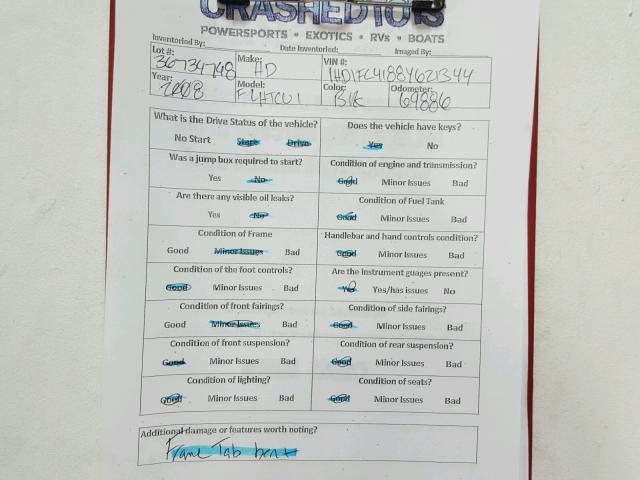 CRASHEDTOYS
POWERSPORTS • EXOTICS • RVs • BOATS
Inventoried By: Date Inventoried: Imaged By:
Lot #: 36734748 Make: HD VIN #: 1HD1FC4188Y621344
Year: 2008 Model: FLHTCUI Color: Blk Odometer: 69886
What is the Drive Status of the vehicle? Does the vehicle have keys?
No Start Start Drive Yes No
Was a jump box required to start? Condition of engine and transmission?
Yes No Good Minor Issues Bad
Are there any visible oil leaks? Condition of Fuel Tank
Yes No Good Minor Issues Bad
Condition of Frame Handlebar and hand controls condition?
Good Minor Issues Bad Good Minor Issues Bad
Condition of the foot controls? Are the instrument guages present?
Good Minor Issues Bad Yes Yes/has issues No
Condition of front fairings? Condition of side fairings?
Good Minor Issues Bad Good Minor Issues Bad
Condition of front suspension? Condition of rear suspension?
Good Minor Issues Bad Good Minor Issues Bad
Condition of lighting? Condition of seats?
Good Minor Issues Bad Good Minor Issues Bad
Additional damage or features worth noting?
Frame Tab bent